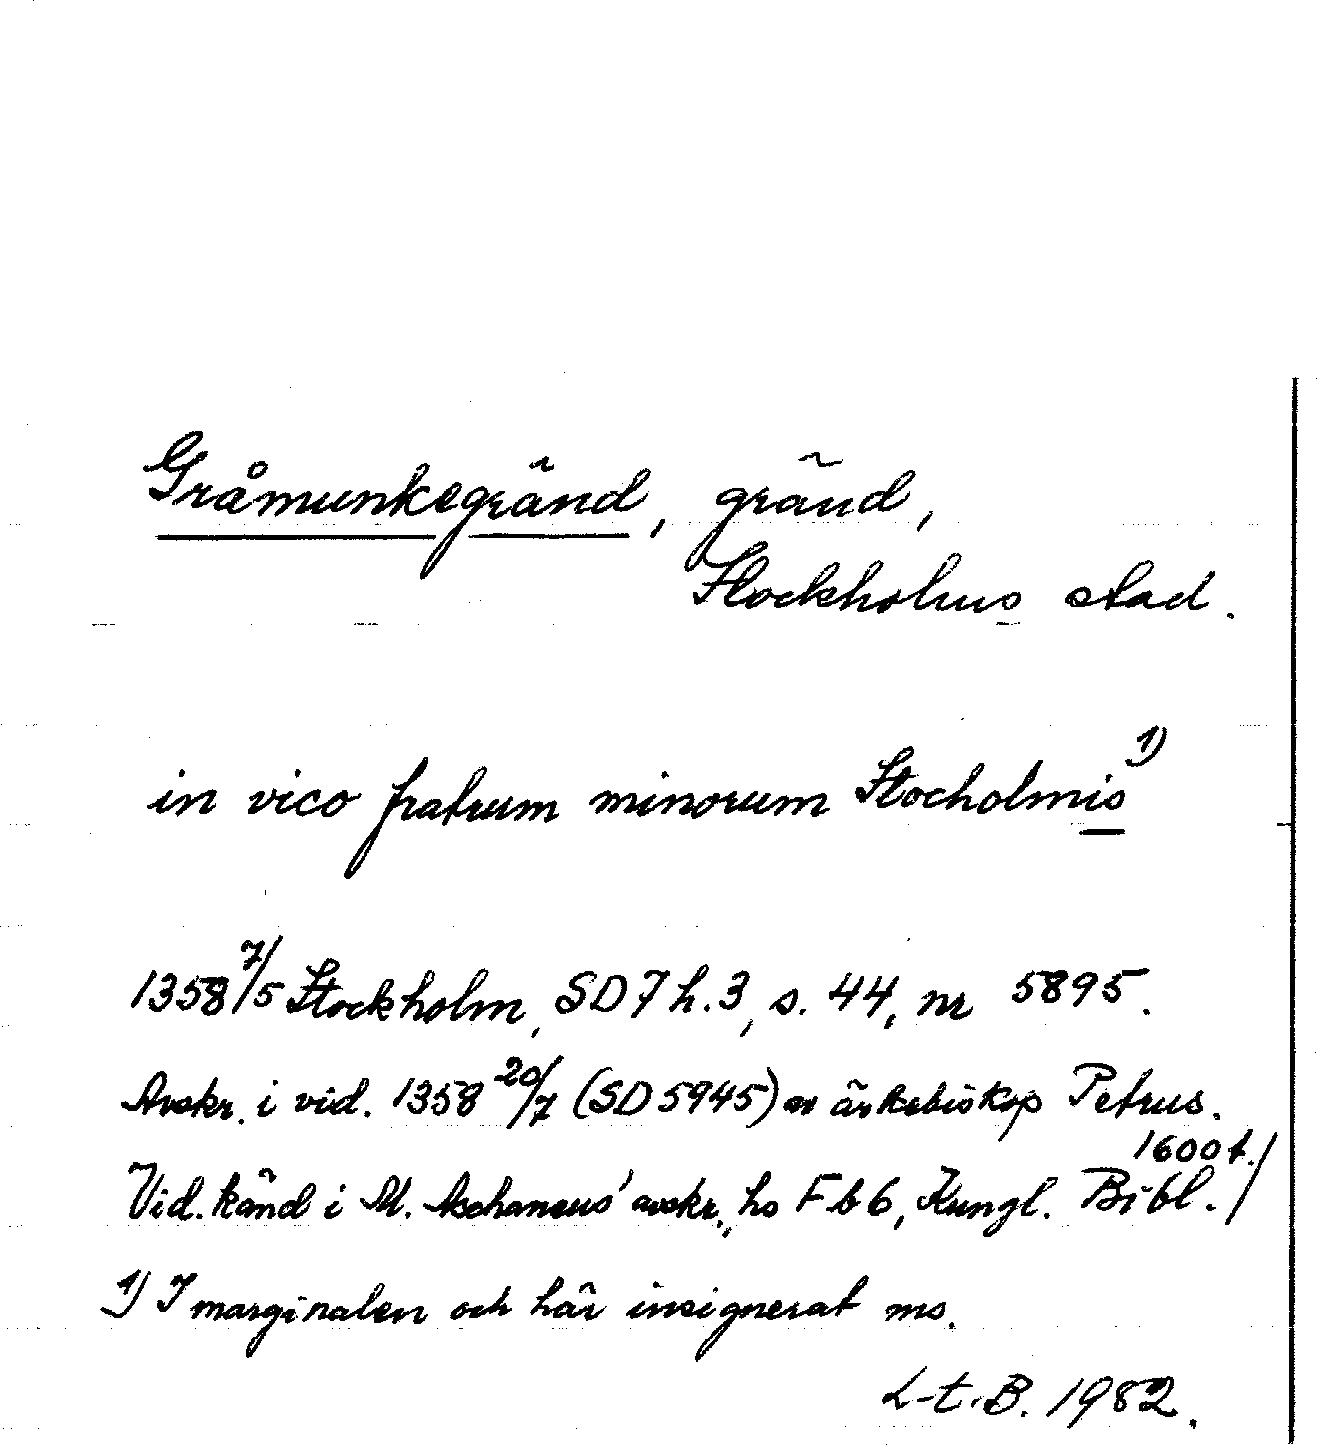 Gråmunkegränd, gränd,
Stockholms stad.
in vico fratrum minorum Stocholmis 1)
1358 7/5 Stockholm, SD 7 h. 3, s. 44, nr 5895.
Avskr. i vid. 1358 20/7 (SD 5945) av ärkebiskop Petrus.
1600 t./
Vid. känd i M. Aschaneus' avskr., hs F b 6, Kungl. Bibl./
1) I marginalen och här insignerat ms.
L-t. B. 1982.